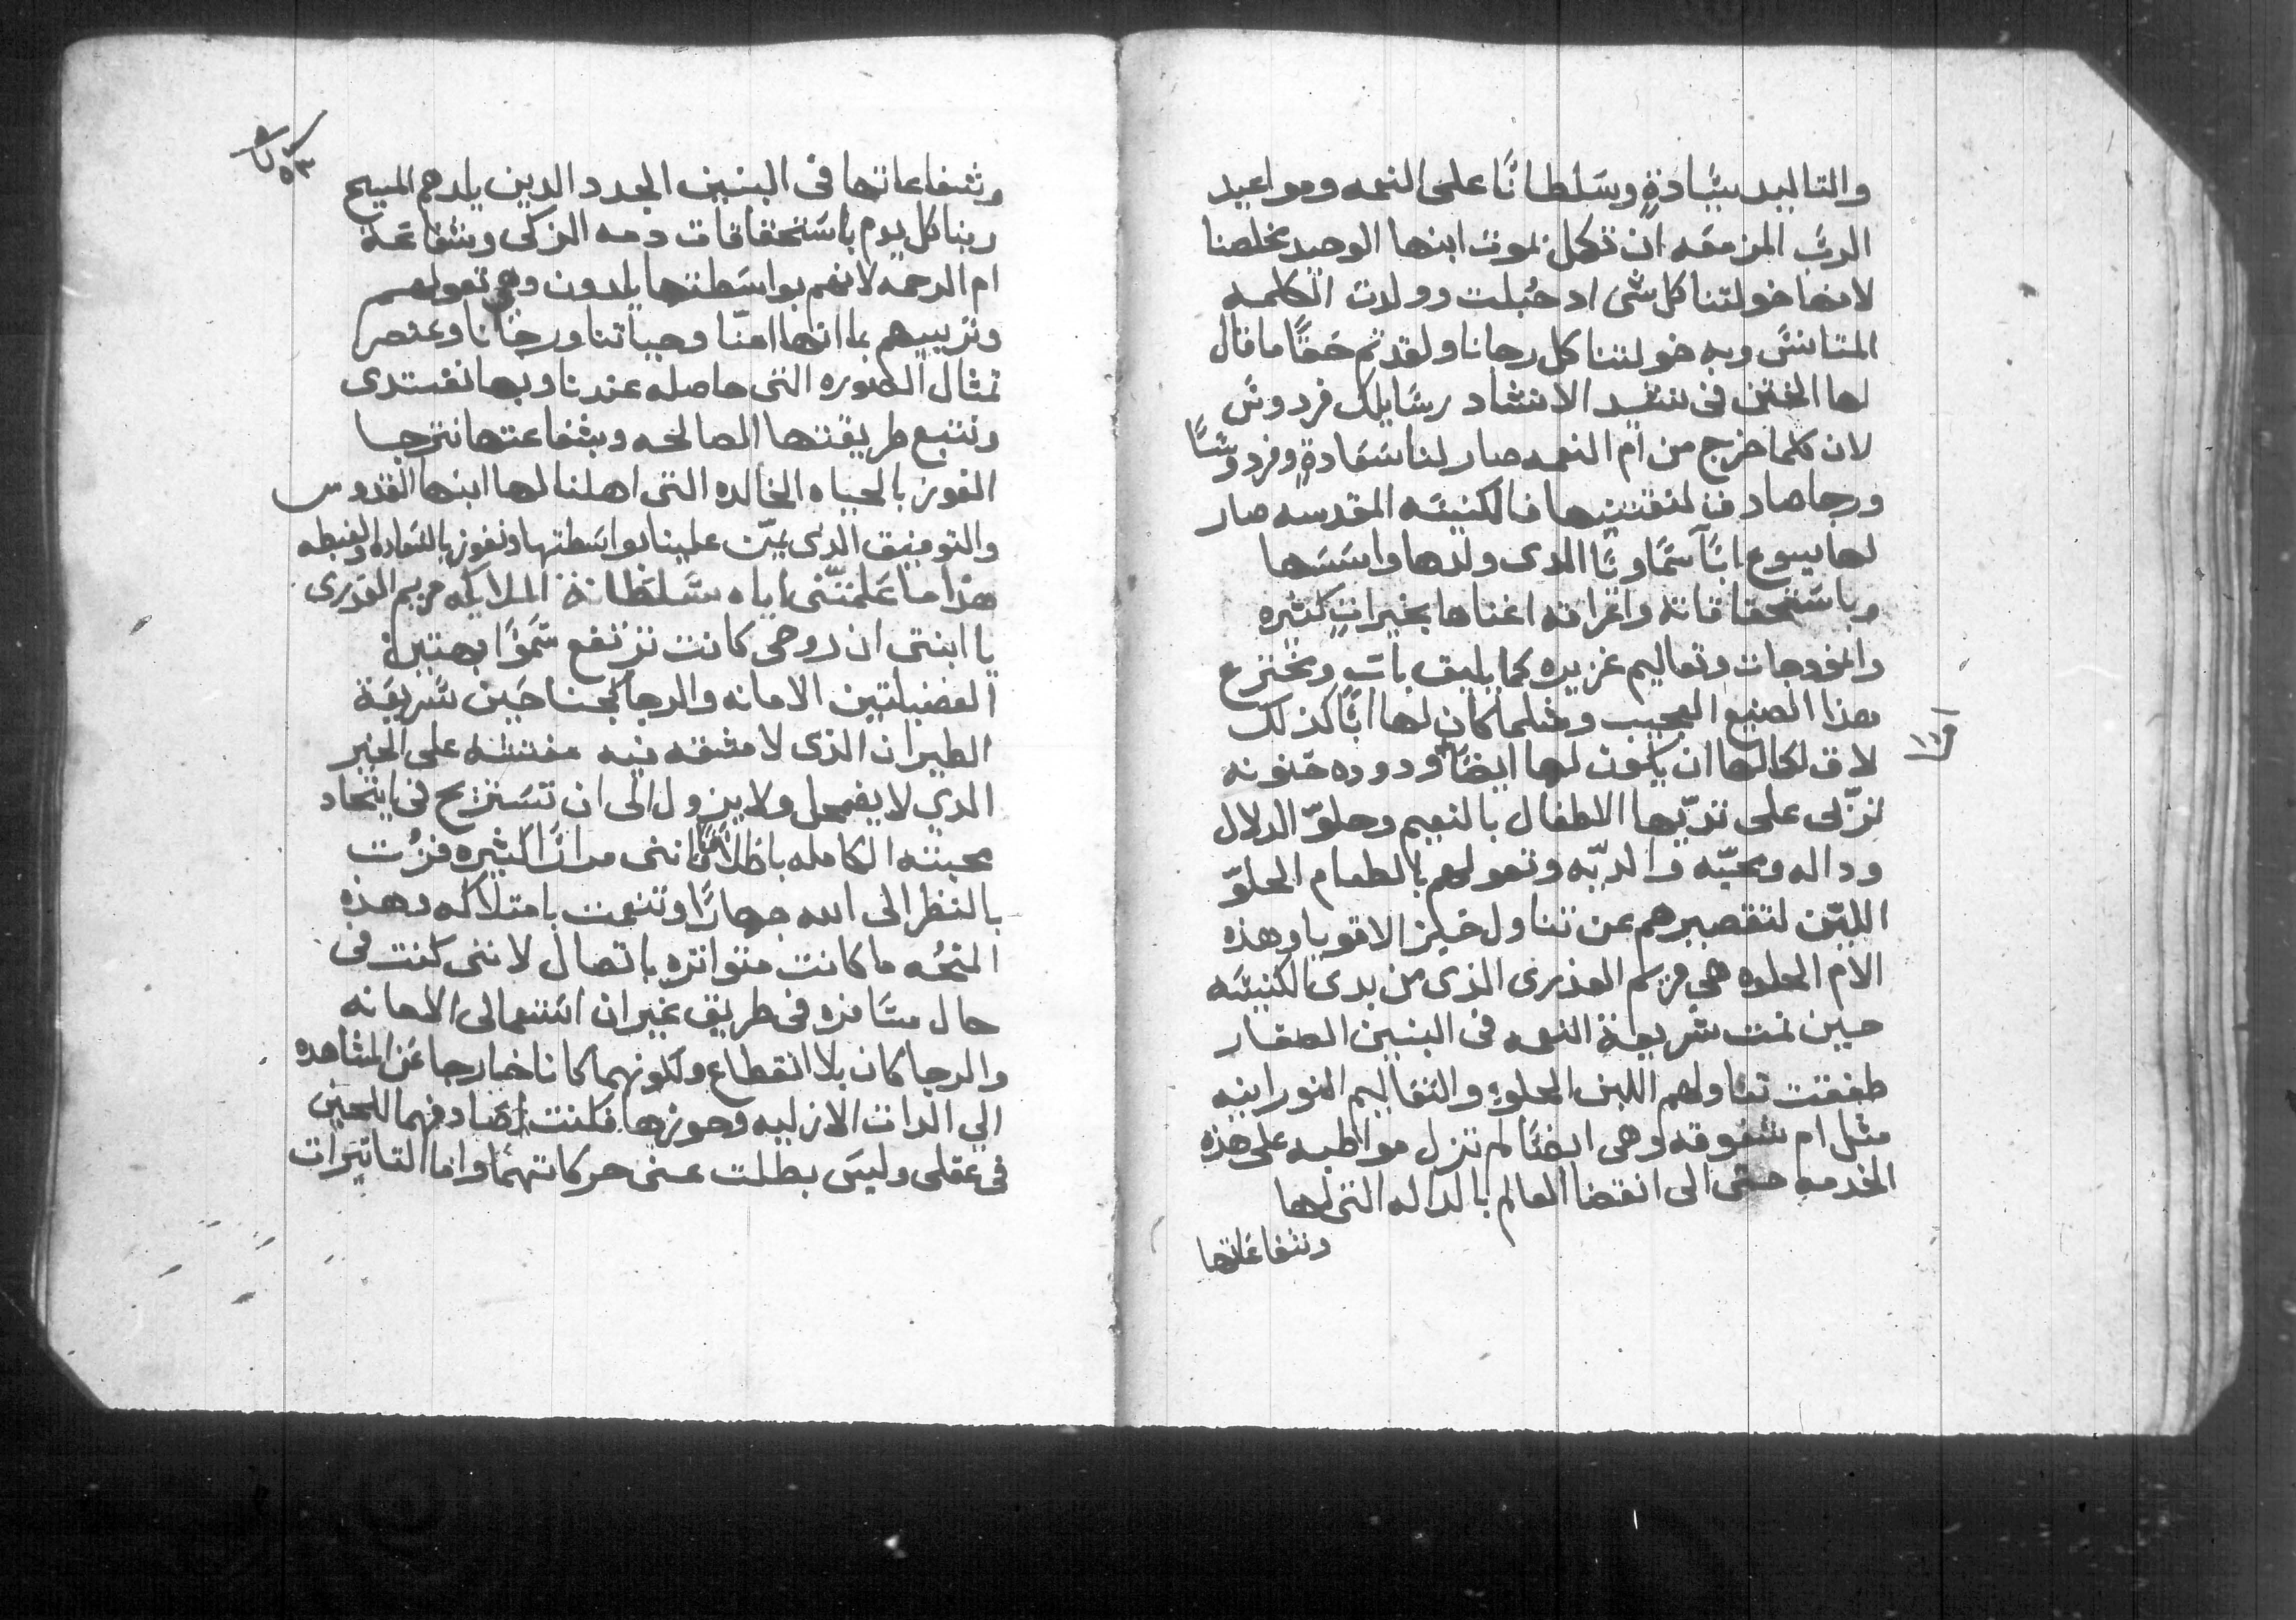 والتاييد سيادةٍ وسلطانًا على النعمه ومواعيد
الرب المزمعه ان تكمل بموت ابنها الوحيد مخلصنا
لانها خولتنا كل شى اد حُبلت وولدت الكلمه
المتانس وبه خولتنا كل رجانا ولقد تم حقًا ما قال
لها الختن فى نشيد الانشاد رسايلك فردوسٌ
لان كلما خرج من ام النعمه صار لنا سعادةٍ وفردوسًا
ورجا صادق لنقتنيها فالكنيسه المقدسه صار
لها يسوع ابًا سماويًا الدى ولدها واسسها
وباستحقاقاته واغراقه اغناها بخيراتٍ كثيره
وانمودجات وتعاليم غزيره كما يليق باب ومخترع
هذا الصنيع العجيب ومثلما كان لها ابًا كذلك
لاق لكمالها ان يكون لها ايضًا ام ودوده حنونه
تزلى على ثديّها الاطفال بالنعيم وحلوّ الدلال
وداله ومحبّه والديّه وتعولهم بالطعام الحلوّ
اللبن لتقصيرهم عن تناول خبز الاقويا وهذه
الام الحلوه هى مريم العذرى الذى من بدى الكنيسه
حين نمت شريعة النعمه فى البنين الصغار
طفقت تناولهم اللبن الحلو والتعاليم النورانيه
مثل ام شفوقه وهى ايضًا لم تزل مواظبه على هذه
الخدمه حتى الى انقضا العالم بالداله التى لها
وشفاعاتها
وشفاعاتها فى البنين الجدد الدين يلدهم المسيح
ربنا كل يوم باستحقاقات دمه الزكى وشفاعة
ام الرحمه لانهم بواسطتها يلدون وهى تعولهم
وتربيهم بما انها امنّا وحياتنا ورجانا وعنصر
تمثال الصوره التى حاصله عندنا وبها نقتدى
ونتبع طريقتها الصالحه وبشفاعتها نترجا
الفوز بالحياه الخالده التى اهلنا لها ابنها القدوس
والتوفيق الدى يمنّ علينا بواسطتها ونفوز بالسعاده والغبطه
هذا ما علمتنى اياه سلطانة الملايكه مريم العذرى
يا ابنتى ان روحى كانت ترتفع سموًا بهتين
الفضيلتين الامانه والرجا كجناحين سريعة
الطيران الذى لا مشقه فيه مفتشه على الخير
الدي لا يضمحل ولا يزول الى ان تستريح فى اتحاد
محبته الكامله باطلاقًا اننى مرارًا كثيره فزت
بالنظر الى الله جهارًا وتنعمت بامتلاكه وهذه
المنحه ما كانت متواتره باتصال لاننى كنت فى
حال مسافره فى طريق غير ان استعمالى الامانه
والرجا كان بلا انقطاع ولكونهما كانا خارجا عن المشاهده
الى الدات الازليه وحوزها فكنت اصادفهما للحين
فى عقلى وليس بطلت عنى حركاتهما واما التاتيرات